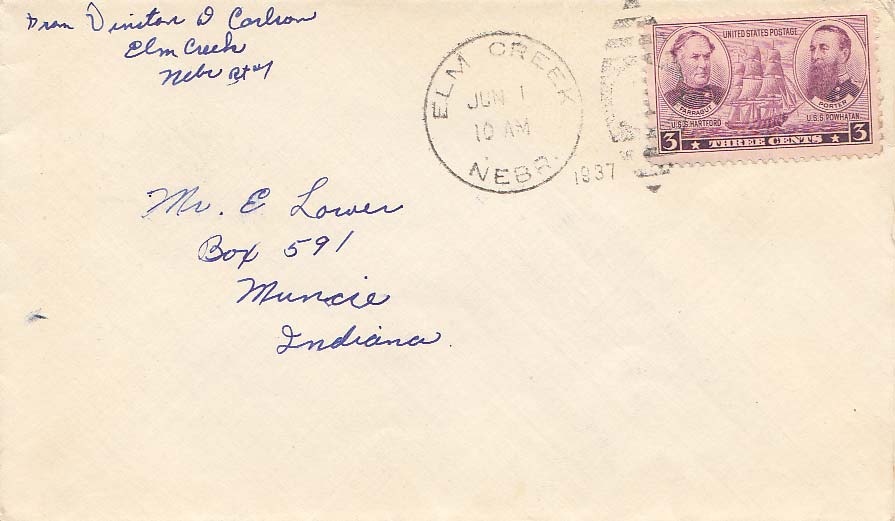 From Vinston D Carlson
Elm Creek
Nebr Rt #1
ELM CREEK
JUN 1
10 AM
NEBR.
1937
UNITED STATES POSTAGE
FARRAGUT
PORTER
U.S.S. HARTFORD
U.S.S. POWHATAN
3 THREE CENTS 3
Mr. E Lower
Box 591
Muncie
Indiana.